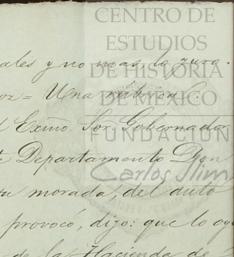 CENTRO DE
ESTUDIOS
DE HISTORIA
DE MÉXICO
FUNDACIÓN
Carlos Slim
ales y no mas, la
= Una
Exmo Sor Gobernador
Departamento Don
su morada, del auto
provoco, dijo: que lo
de la Hacienda de